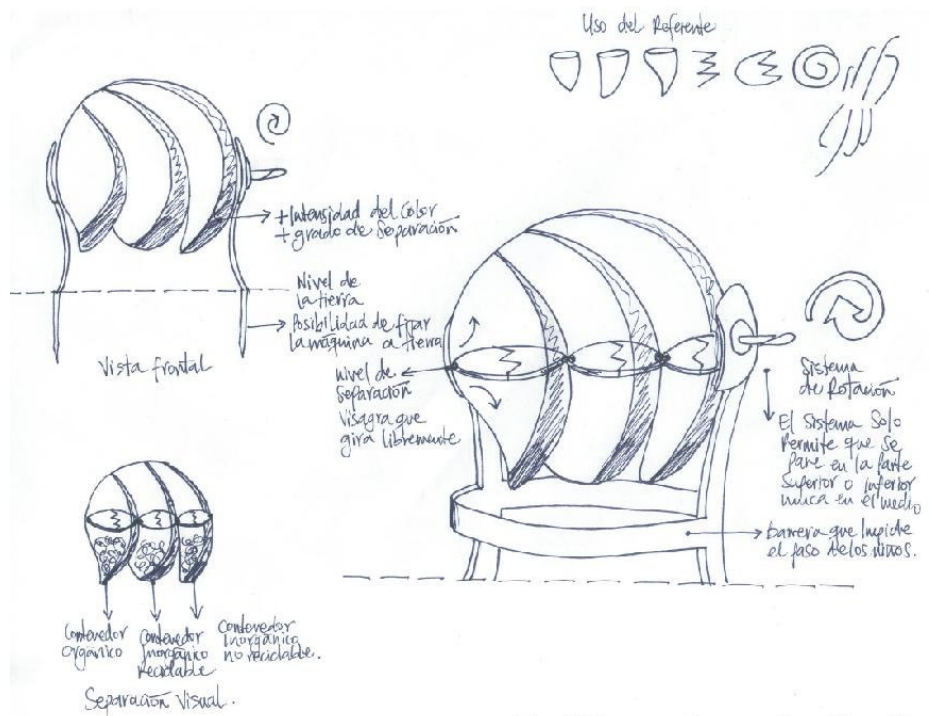 Uso del Referente
+ Intensidad del Color
+ grado de Separación
Nivel de
la tierra
Posibilidad de fijar
la máquina a tierra
Vista frontal
nivel de
Separación
visagra que
gira libremente
Sistema
de Rotación
El sistema Solo
Permite que Se
pare en la parte
Superior o inferior
nunca en el medio
barrera que impide
el paso de los niños.
Contenedor
orgánico
Contenedor
Inorgánico
reciclable
Contenedor
Inorgánico
no reciclable.
Separación Visual.